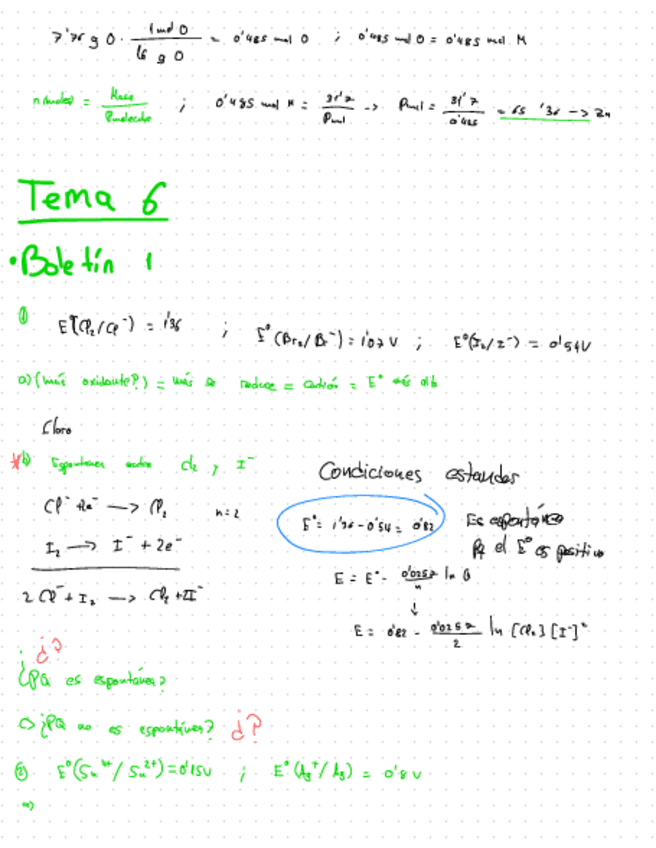 7'76 g O · 1 mol O / 16 g O = 0'485 mol O ; 0'485 mol O = 0'485 mol M
n(moles) = Masa / Pmolecular ; 0'485 mol M = 31'7 / Pmol -> Pmol = 31'7 / 0'485 = 65'36 -> Zn
Tema 6
• Boletín 1
① E°(Cl₂/Cl⁻) = 1'36 ; E°(Br₂/Br⁻) = 1'07 V ; E°(I₂/I⁻) = 0'54V
a) (más oxidante?) = más se reduce = = E° más alto
Cloro
*b) Espontanea entre Cl₂ y I⁻
Condiciones estandar
Cl⁻ + 2e⁻ -> Cl₂ n=2
E° = 1'36 - 0'54 = 0'82
Es espontáneo
Pq el E° es positivo
I₂ -> I⁻ + 2e⁻
E = E° - 0'0257 / n ln Q
2Cl⁻ + I₂ -> Cl₂ + 2I⁻
↓
E = 0'82 - 0'0257 / 2 ln [Cl₂] [I⁻]²
¿?
¿PQ es espontánea?
c) ¿PQ no es espontánea? ¿?
② E°(Sn⁴⁺/Sn²⁺) = 0'15V ; E°(Ag⁺/Ag) = 0'8 V
a)